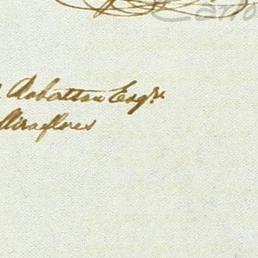 Robatton Esqr.
Miraflores